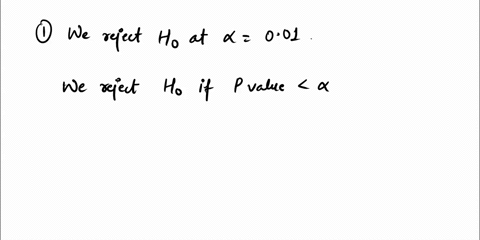 ① We reject H₀ at α = 0.01.
We reject H₀ if P value < α